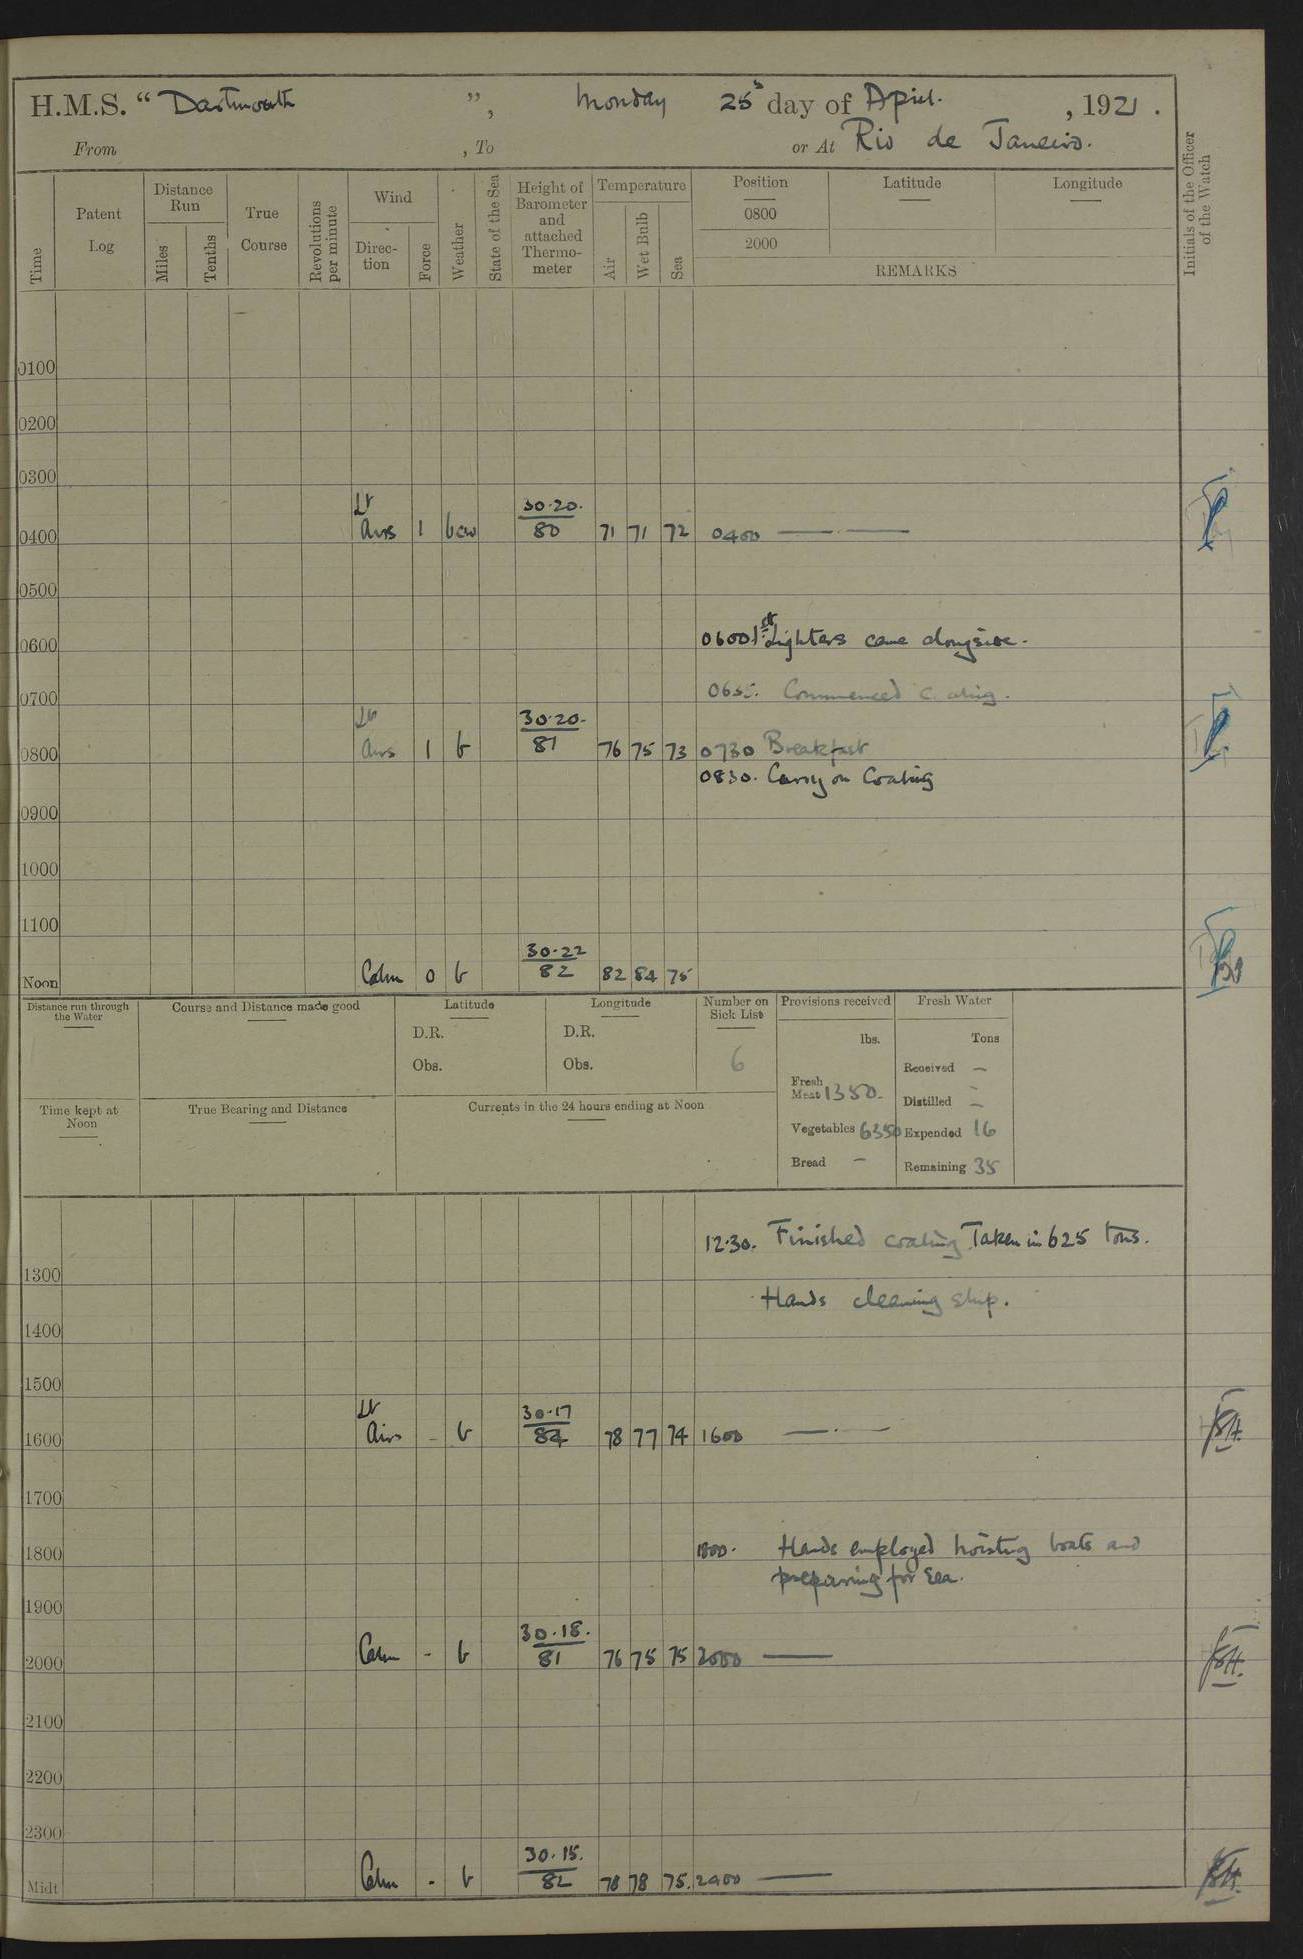 H.M.S. “ Dartmouth ”, Monday 25 day of April. , 1921 .
From , To or At Rio de Janeiro.
Time
Patent Log
Distance Run
Miles
Tenths
True Course
Revolutions per minute
Wind
Direction
Force
Weather
State of the Sea
Height of Barometer and attached Thermometer
Temperature
Air
Wet Bulb
Sea
Position
0800
2000
Latitude
Longitude
REMARKS
Initials of the Officer of the Watch
0100
0200
0300
0400 Lt airs 1 bcw 30·20. 80 71 71 72 0400 —
0500
0600 0600 1st Lighters came alongside.
0700 Commenced Coaling.
0800 Lt airs 1 b 30·20. 81 76 75 73 0730 Breakfast
0830. Carry on Coaling
0900
1000
1100
Noon Calm 0 b 30·22 82 82 84 75
Distance run through the Water
Course and Distance made good
Latitude
D.R.
Obs.
Longitude
D.R.
Obs.
Number on Sick List
6
Provisions received
lbs.
Fresh Meat 1350.
Vegetables 6350
Bread –
Fresh Water
Tons
Received –
Distilled –
Expended 16
Remaining 35
Time kept at Noon
True Bearing and Distance
Currents in the 24 hours ending at Noon
12·30. Finished coaling Taken in 625 tons.
1300
Hands cleaning ship.
1400
1500
1600 Lt airs - b 30·17 82 78 77 74 1600 —
1700
1800 1800. Hands employed hoisting boats and
preparing for sea.
1900
2000 Calm - b 30.18. 81 76 75 75 2000 —
2100
2200
2300
Midt Calm - b 30.15. 82 78 78 75. 2400 —